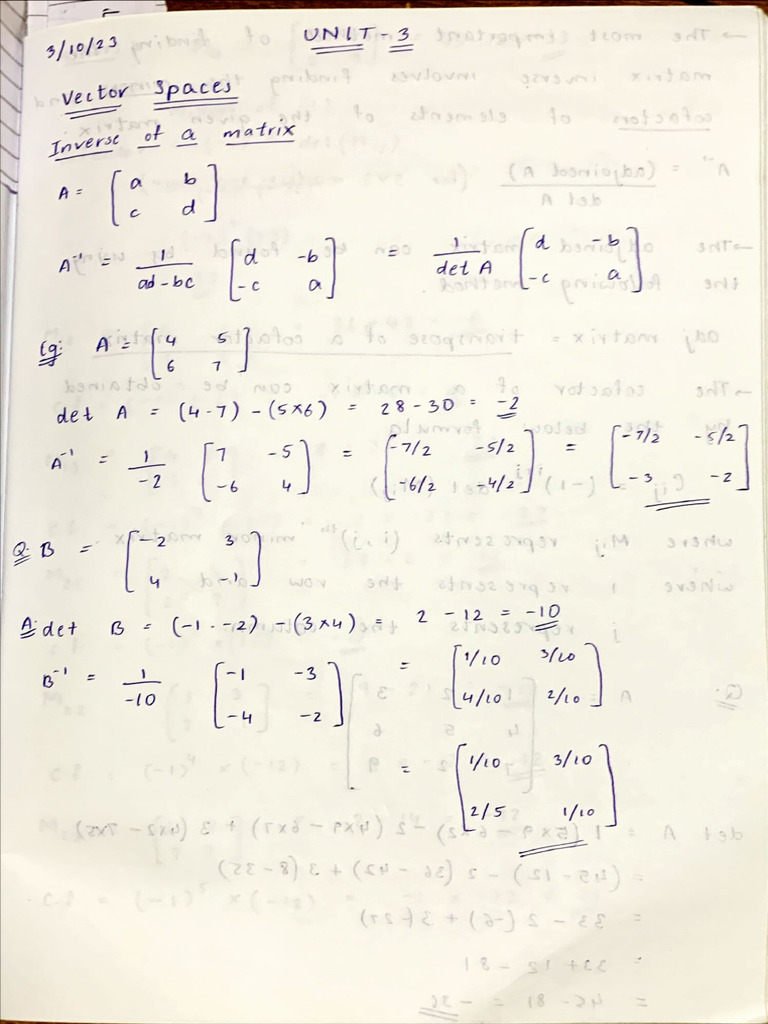 3/10/23
UNIT-3
Vector Spaces
Inverse of a matrix
A = [a b
c d]
A⁻¹ = 1/(ad-bc) [d -b = 1/(det A) [d -b
-c a] -c a]
Eg: A = [4 5
6 7]
det A = (4·7) - (5×6) = 28-30 = -2
A⁻¹ = 1/-2 [7 -5 = [-7/2 -5/2 = [-7/2 -5/2
-6 4] -6/2 -4/2] -3 -2]
Q. B = [-2 3
4 -1]
A: det B = (-1·-2) - (3×4) = 2 - 12 = -10
B⁻¹ = 1/-10 [-1 -3 = [1/10 3/10
-4 -2] 4/10 2/10]
= [1/10 3/10
2/5 1/10]